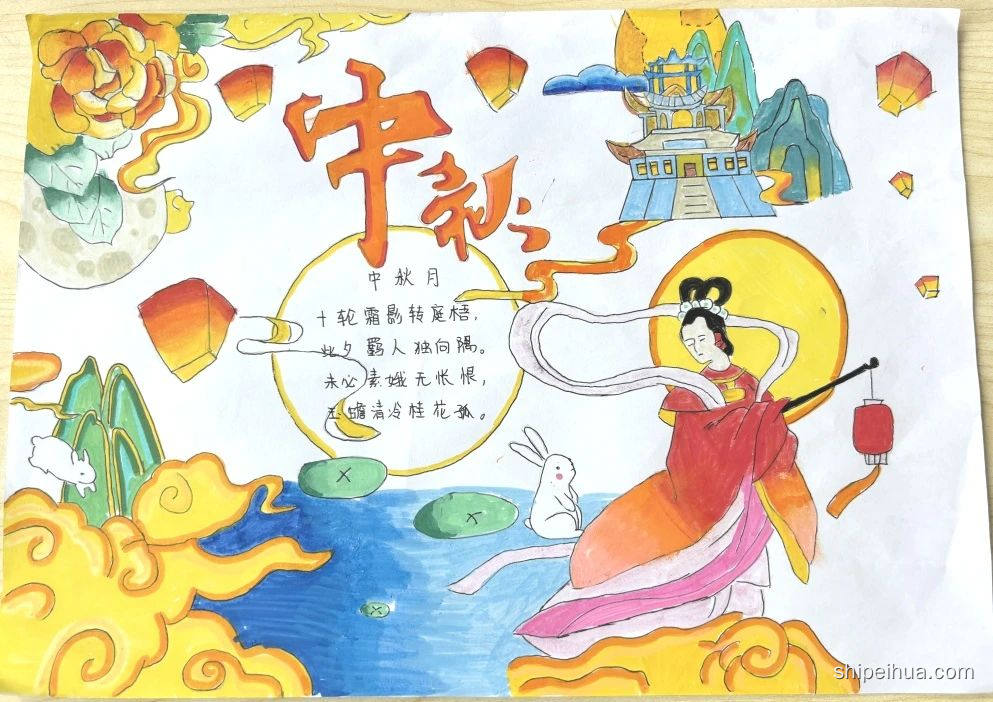 中秋
中秋月
十轮霜影转庭梧，
此夕羁人独向隅。
未必素娥无怅恨，
玉蟾清冷桂花孤。
shipeihua.com